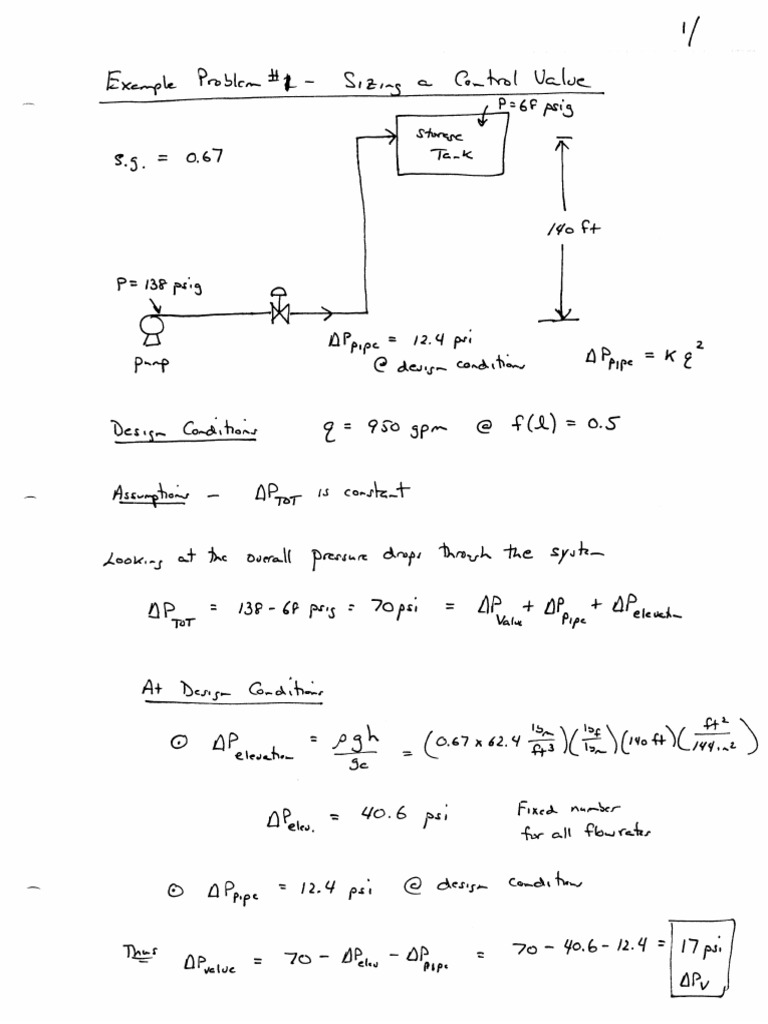 1/
Example Problem #1 - Sizing a Control Valve
P = 68 psig
Storage
Tank
s.g. = 0.67
140 ft
P = 138 psig
ΔP_pipe = 12.4 psi
@ design conditions
ΔP_pipe = K q²
pump
Design Conditions q = 950 gpm @ f(l) = 0.5
Assumptions - ΔP_TOT is constant
Looking at the overall pressure drops through the system
ΔP_TOT = 138 - 68 psig = 70 psi = ΔP_Valve + ΔP_Pipe + ΔP_elevation
At Design Conditions
⊙ ΔP_elevation = ρgh/gc = (0.67 x 62.4 lbm/ft³)(lbf/lbm)(140 ft)(ft²/144 in²)
ΔP_elev. = 40.6 psi Fixed number
for all flowrates
⊙ ΔP_pipe = 12.4 psi @ design condition
Thus ΔP_valve = 70 - ΔP_elev - ΔP_pipe = 70 - 40.6 - 12.4 = 17 psi
ΔP_V